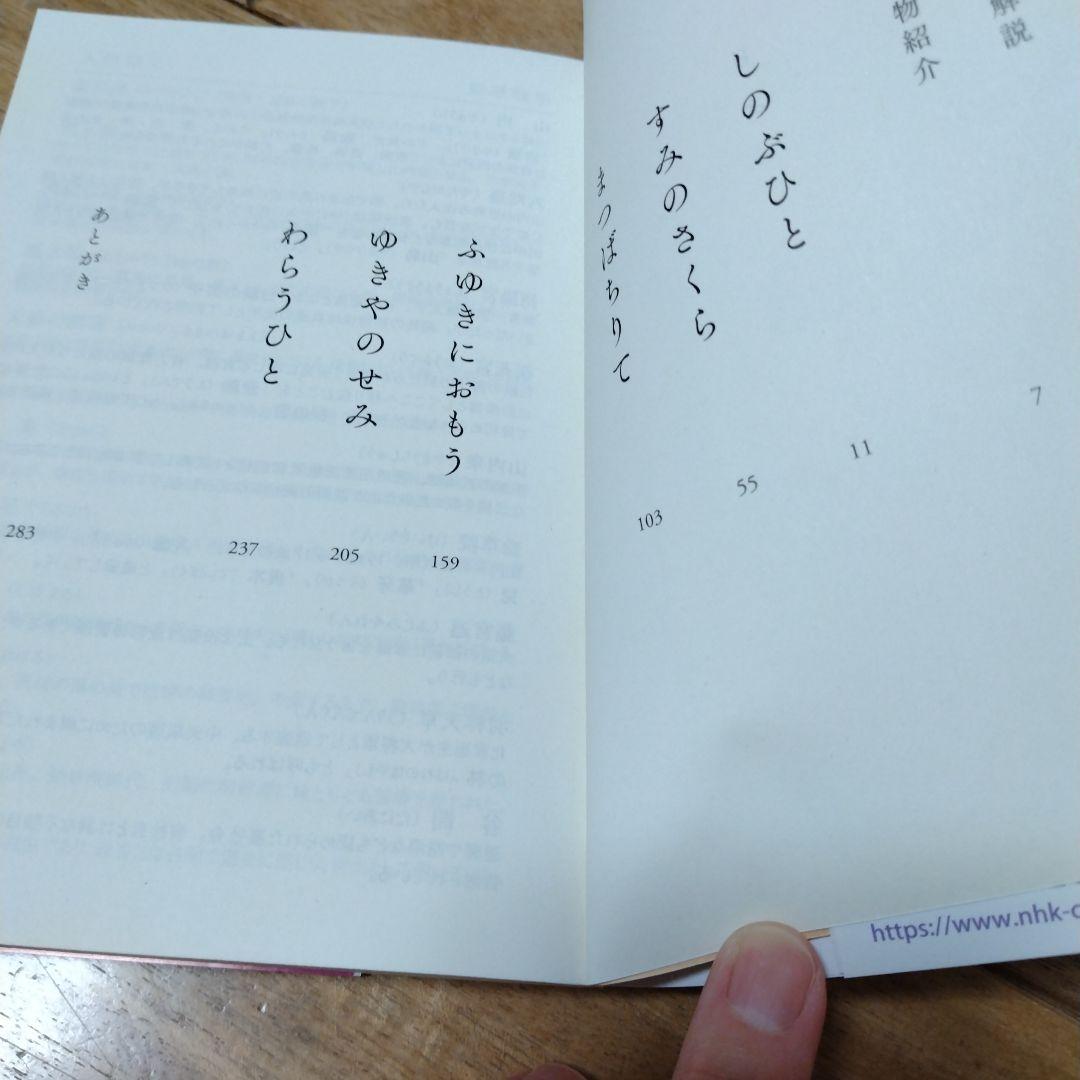 解説
7
物紹介
しのぶひと
11
すみのさくら
55
まつばちりて
103
ふゆきにおもう
159
ゆきやのせみ
205
わらうひと
237
あとがき
283
https://www.nhk-c